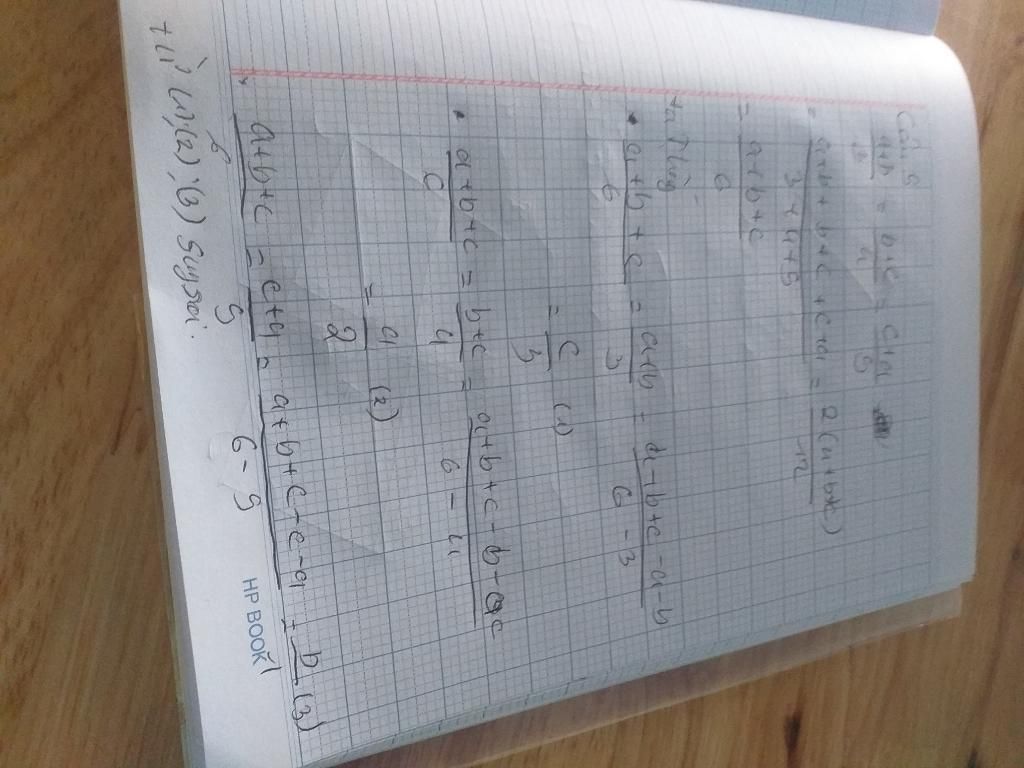 Câu 5
a+b/3 = b+c/4 = c+a/5
= a+b+b+c+c+a/3+4+5 = 2(a+b+c)/12
= a+b+c/6
• a+b+c/6 = a+b/3 = a+b+c-a-b/6-3
= c/3 (1)
• a+b+c/6 = b+c/4 = a+b+c-b-c/6-4
= a/2 (2)
• a+b+c/6 = c+a/5 = a+b+c-c-a/6-5 = b (3)
+ từ (1), (2), (3) Suy ra:
HP BOOK